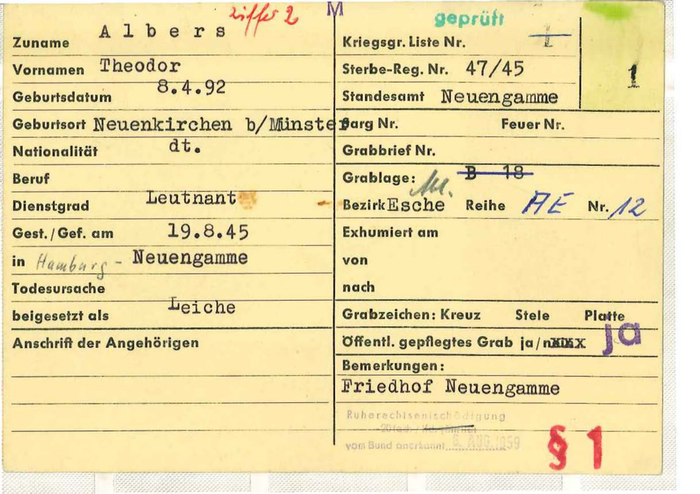 ziffer 2 M geprüft
Zuname Albers
Vornamen Theodor
Geburtsdatum 8.4.92
Geburtsort Neuenkirchen b/Münster
Nationalität dt.
Beruf
Dienstgrad Leutnant
Gest./Gef. am 19.8.45
in Hamburg - Neuengamme
Todesursache
beigesetzt als Leiche
Anschrift der Angehörigen
Kriegsgr. Liste Nr. 1
1
Sterbe-Reg. Nr. 47/45
Standesamt Neuengamme
Sarg Nr. Feuer Nr.
Grabbrief Nr.
Grablage: B 18
Bezirk Esche Reihe AE Nr. 12
Exhumiert am
von
nach
Grabzeichen: Kreuz Stele Platte
Öffentl. gepflegtes Grab ja/ ja
Bemerkungen:
Friedhof Neuengamme
Ruherechtsentschädigung
vom Bund anerkannt 1959
§ 1